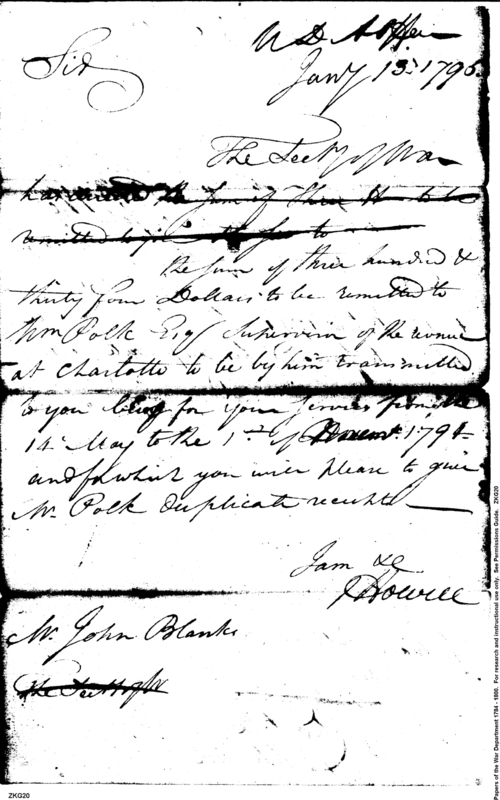 W D A Office
Jany 13. 1795.
Sir
The Secty of War
has ordered the sum of three H to be
remitted to
the sum of three hundred &
thirty four Dollars to be remitted to
Wm Polk Esq Supervisor of the revenue
at Charlotte to be by him transmitted
to you being for your services from the
14 May to the 1st of 1794
and for which you will please to give
Mr. Polk duplicate receipts
I am &c
Howell
Mr. John Blanks
The Secty of War
ZKG20
Papers of the War Department 1784 - 1800. For research and instructional use only. See Permissions Guide. ZKG20